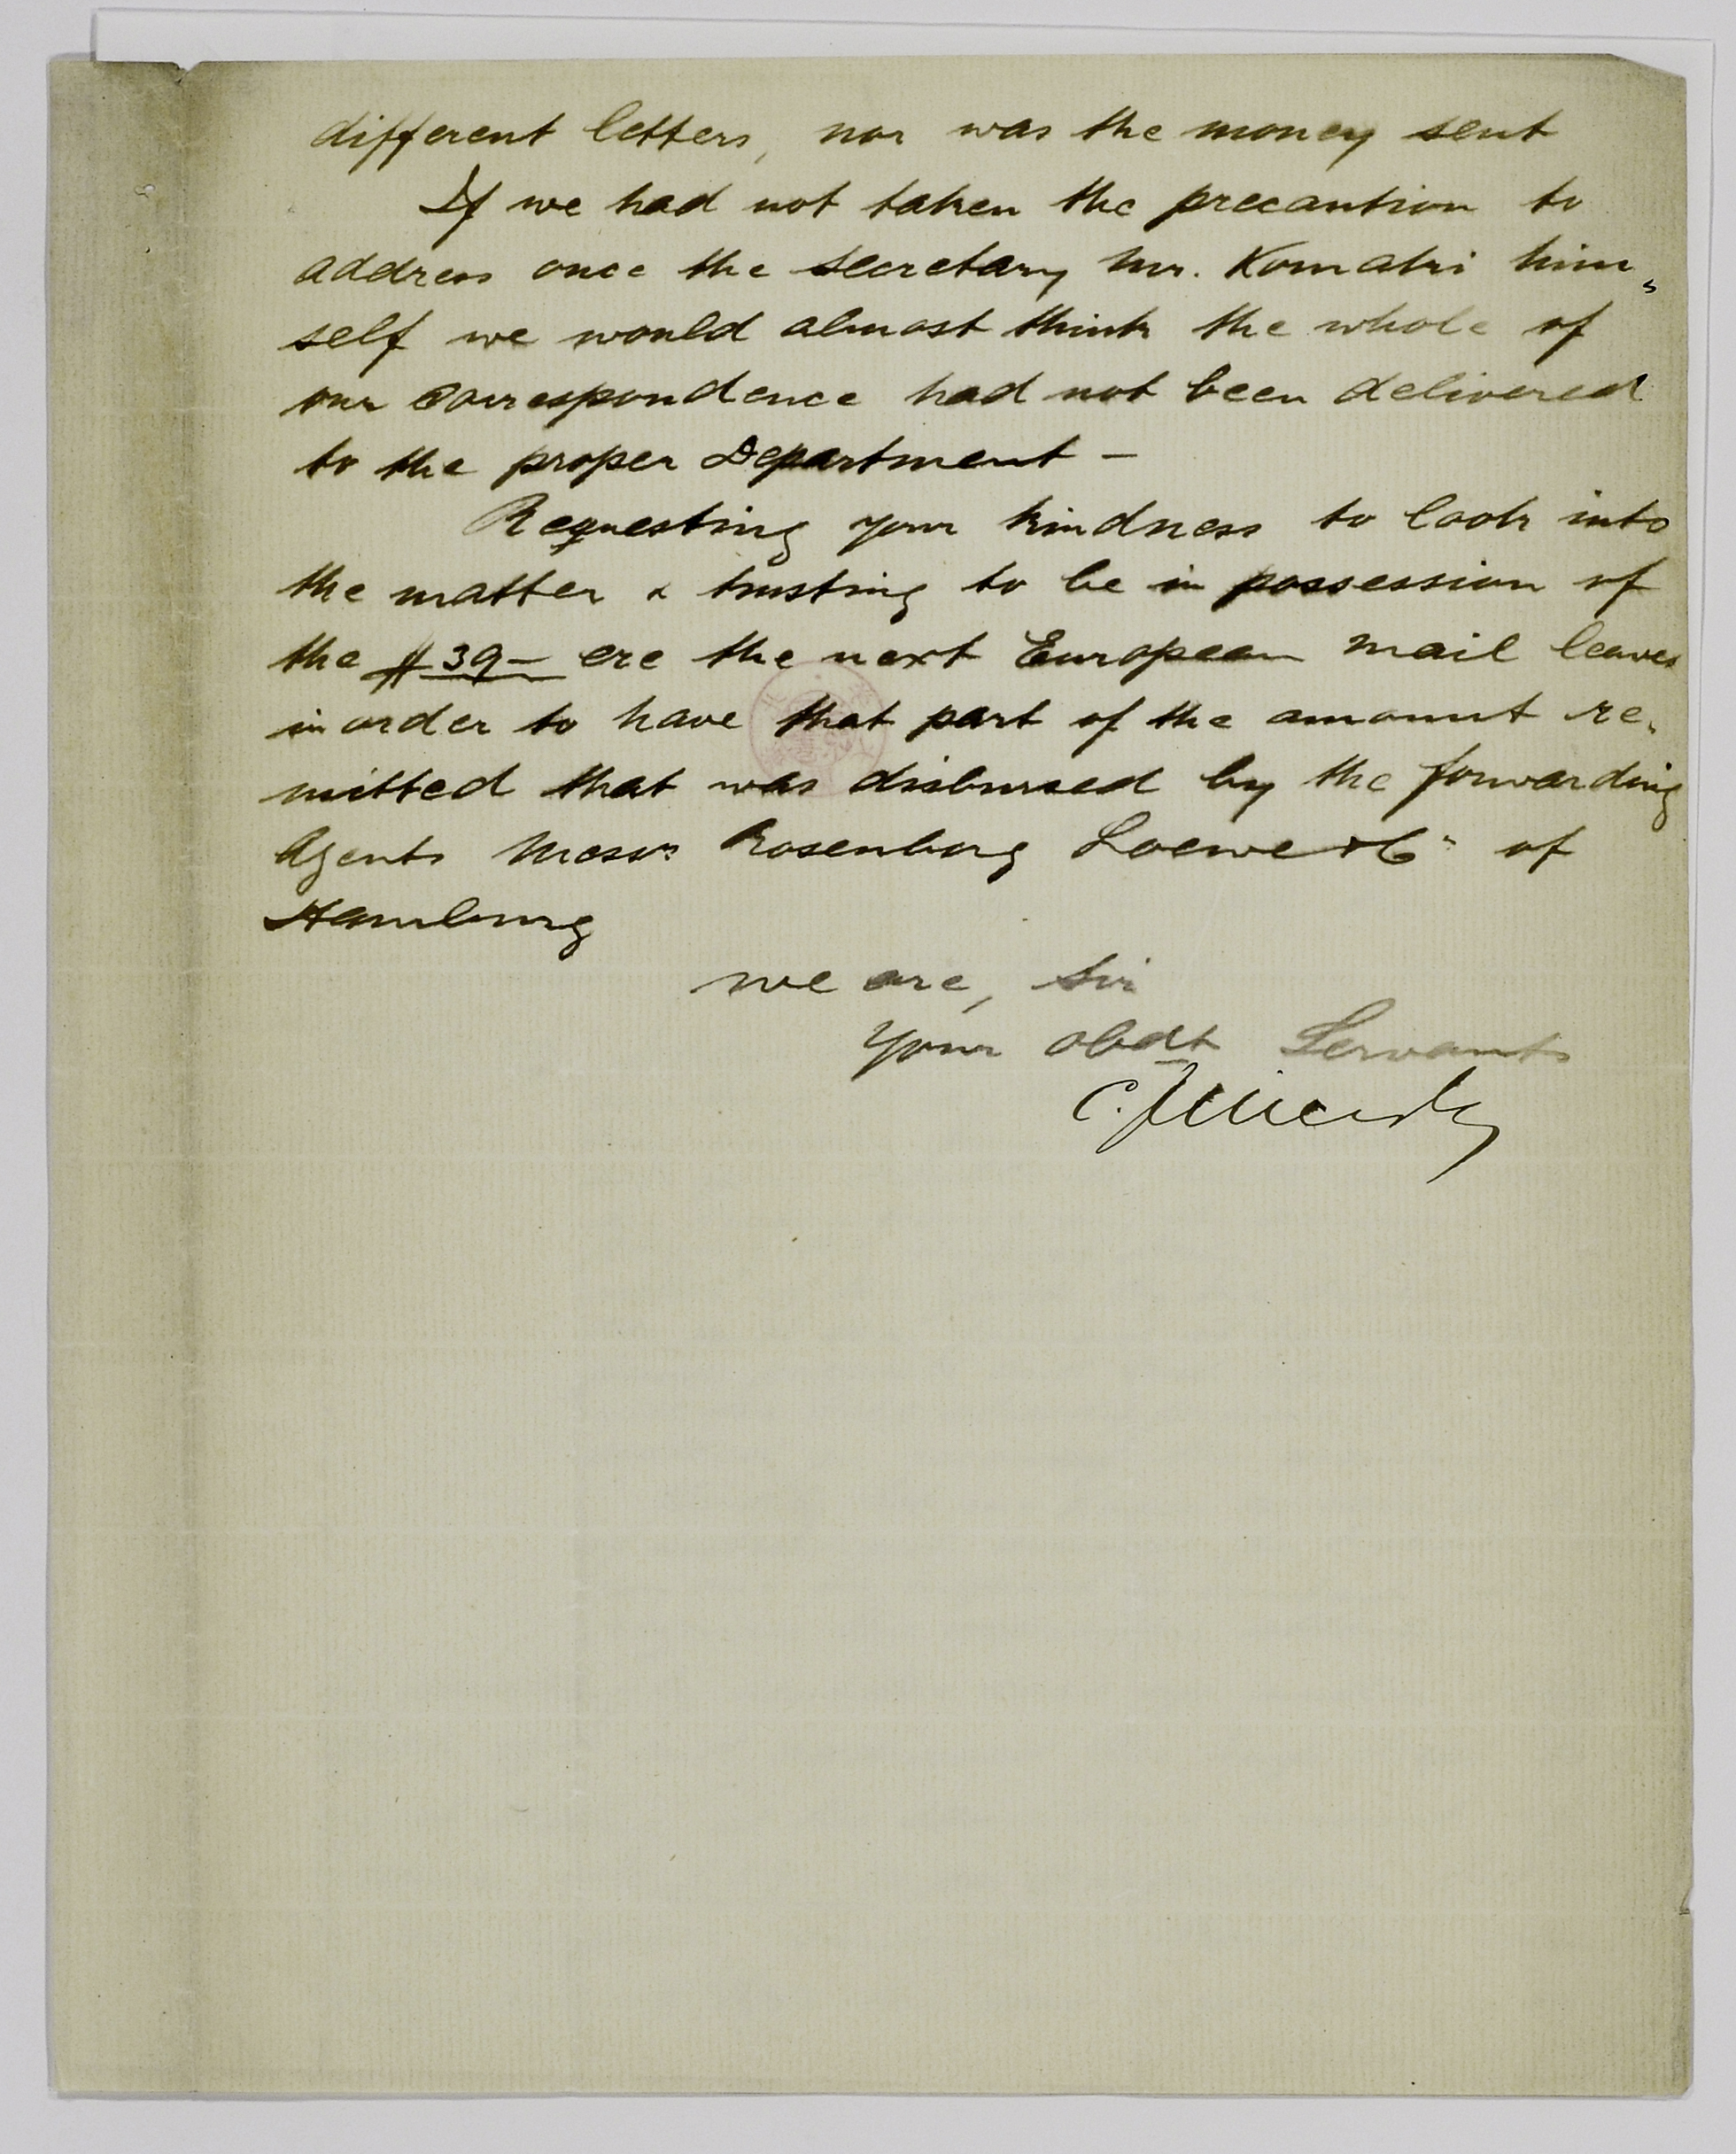 different letters, nor was the money sent
If we had not taken the precaution to
address once the secretary Mr. Komatri him-
self we would almost think the whole of
our correspondence had not been delivered
to the proper Department —
Requesting your kindness to look into
the matter & trusting to be in possession of
the $ 39 — ere the next European mail leaves
in order to have that part of the amount re-
mitted that was disbursed by the forwarding
Agents Messrs Rosenborg Loewe & Co of
Hamburg
we are, Sir
Your obdt Servants
C.